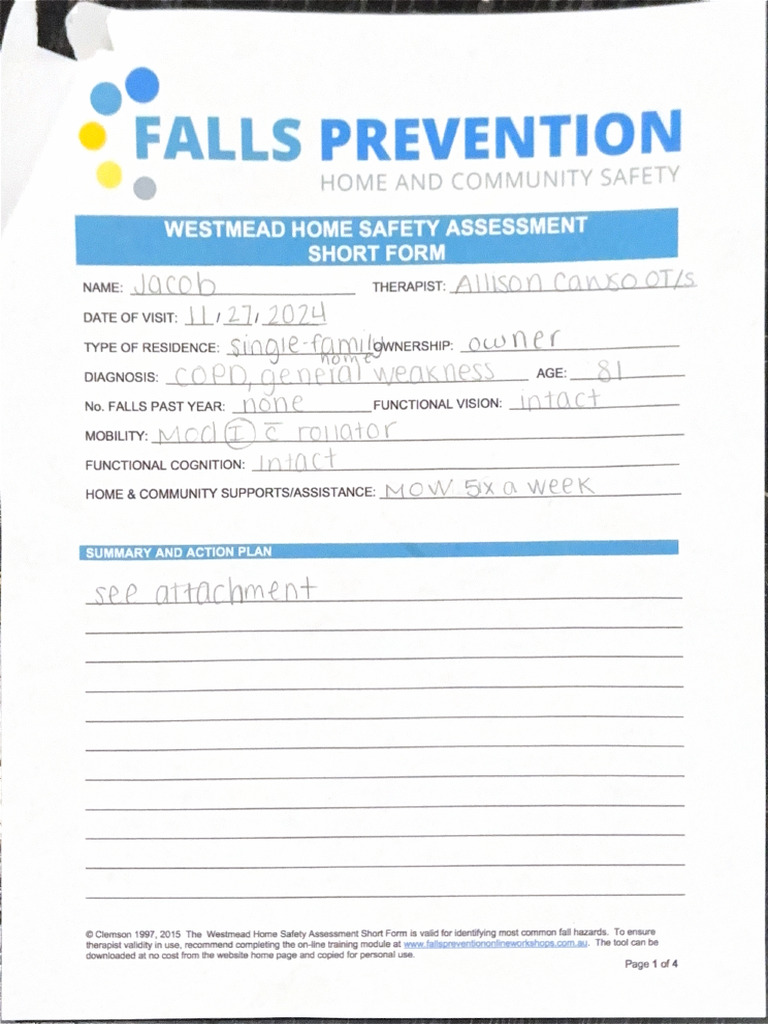 FALLS PREVENTION
HOME AND COMMUNITY SAFETY
WESTMEAD HOME SAFETY ASSESSMENT
SHORT FORM
NAME: Jacob THERAPIST: Allison Canso OT/s
DATE OF VISIT: 11/27/2024
TYPE OF RESIDENCE: single-family home OWNERSHIP: owner
DIAGNOSIS: COPD, general weakness AGE: 81
No. FALLS PAST YEAR: none FUNCTIONAL VISION: intact
MOBILITY: Mod Ⓘ c̄ rollator
FUNCTIONAL COGNITION: Intact
HOME & COMMUNITY SUPPORTS/ASSISTANCE: MOW 5x a week
SUMMARY AND ACTION PLAN
see attachment
© Clemson 1997, 2015 The Westmead Home Safety Assessment Short Form is valid for identifying most common fall hazards. To ensure
therapist validity in use, recommend completing the on-line training module at www.fallspreventiononlineworkshops.com.au. The tool can be
downloaded at no cost from the website home page and copied for personal use.
Page 1 of 4